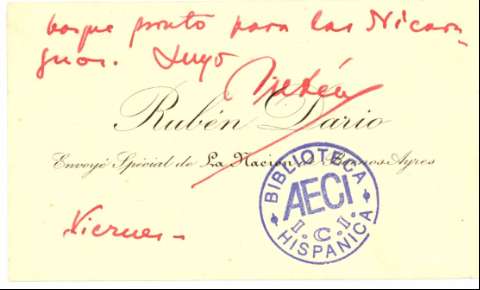 barque pronto para las Nicara-
guas. Suyo
Rubén
Rubén Dario
Envoyé Spécial de La Nacion de Buenos Ayres
BIBLIOTECA
AECI
I.C.I.
HISPANICA
Viernes -